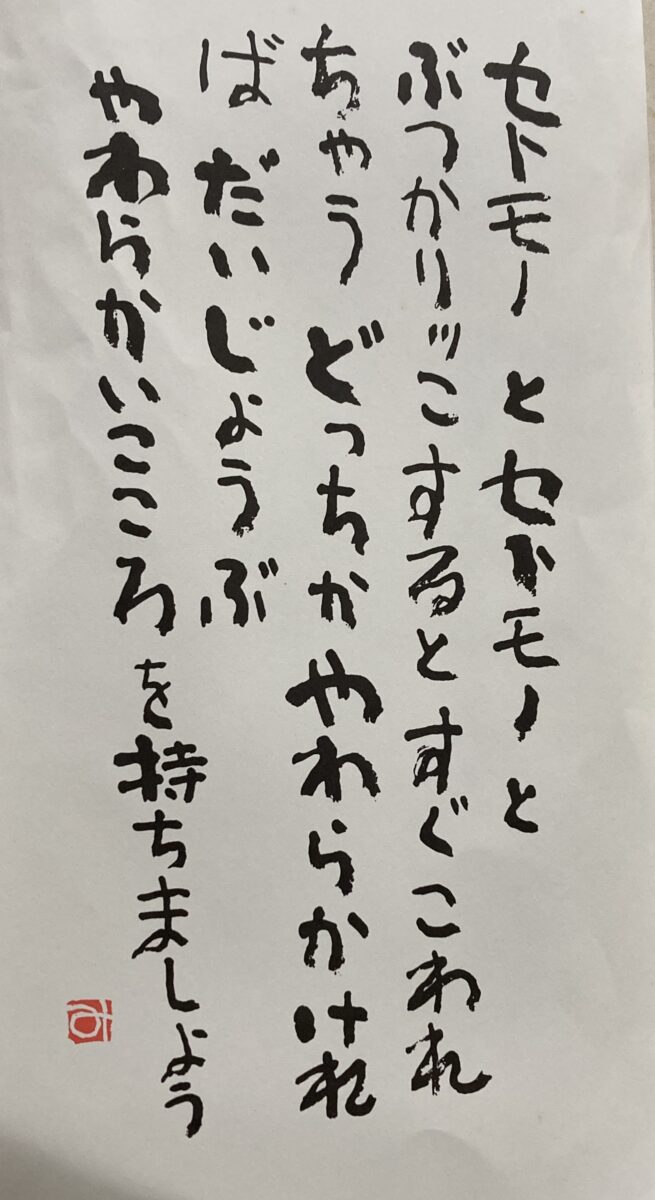 セトモノとセトモノと
ぶつかりッこするとすぐこわれ
ちゃうどっちかやわらかけれ
ばだいじょうぶ
やわらかいこころを持ちましょう
み